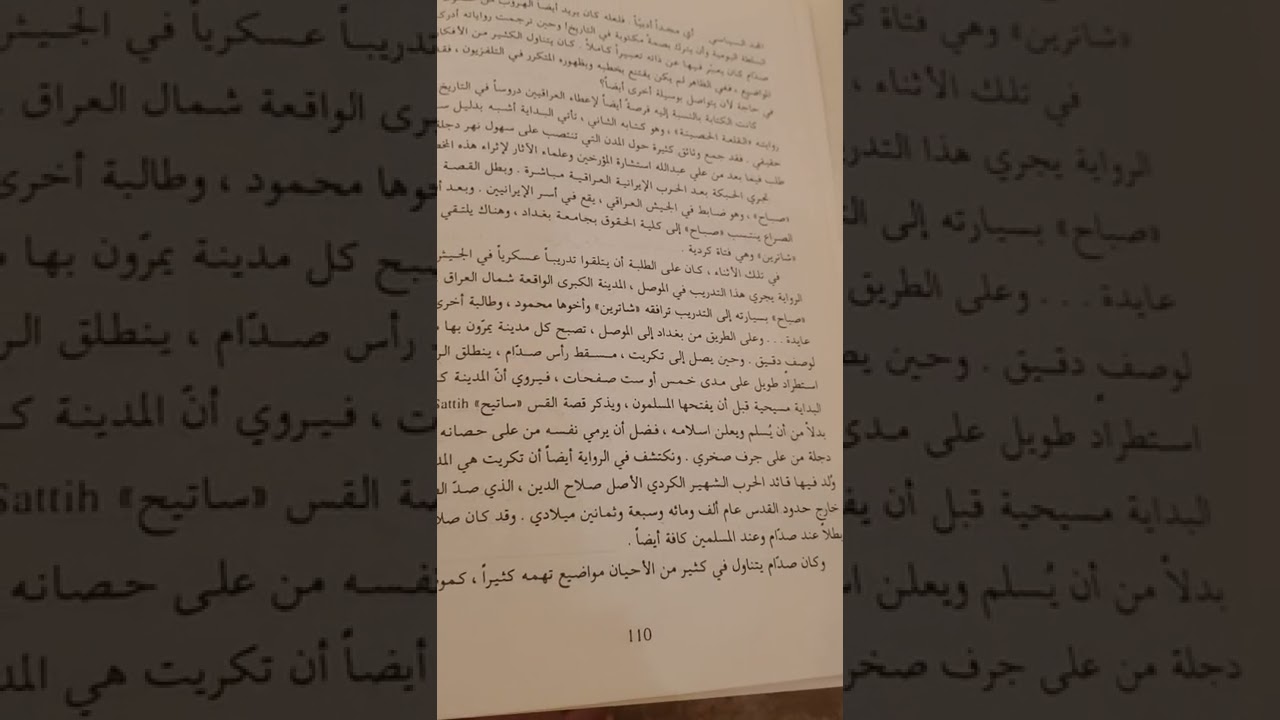 المجد السياسي . أي مجداً أدبيّاً . فلعله كان يريد أيضاً الهروب من
السلطة اليومية وأن يترك بصمة مكتوبة في التاريخ! وحين ترجمت رواياته
صدام كان يعبّر فيها عن ذاته تعبيراً كاملاً . كان يتناول الكثير من الأفكار
المواضيع ، ففي الظاهر لم يكن يقتنع بخطبه وبظهوره المتكرر في التلفزيون ،
في حاجة لأن يتواصل بوسيلة أخرى أيضاً؟
كانت الكتابة بالنسبة إليه فرصةً أيضاً لإعطاء العراقيين دروساً في التاريخ
روايته «القلعة الحصينة» ، وهو كتابه الثاني ، تأتي البداية أشبه بدليل
حقيقي . فقد جمع وثائق كثيرة حول المدن التي تنتصب على سهول نهر دجلة
طلب فيما بعد من علي عبدالله استشارة المؤرخين وعلماء الآثار لإثراء هذه
تجري الحبكة بعد الحرب الإيرانية العراقية مباشرة . وبطل القصة
«صباح» ، وهو ضابط في الجيش العراقي ، يقع في أسر الإيرانيين . وبعد
الصراع ينتسب «صباح» إلى كلية الحقوق بجامعة بغداد ، وهناك يلتقي
«شاترين» وهي فتاة كردية .
في تلك الأثناء ، كان على الطلبة أن يتلقوا تدريباً عسكرياً في الجيش
الرواية يجري هذا التدريب في الموصل ، المدينة الكبرى الواقعة شمال العراق
«صباح» بسيارته إلى التدريب ترافقه «شاترين» وأخوها محمود ، وطالبة أخرى
عايدة . . . وعلى الطريق من بغداد إلى الموصل ، تصبح كل مدينة يمرّون بها
لوصف دقيق . وحين يصل إلى تكريت ، مسقط رأس صدّام ، ينطلق
استطرادٌ طويل على مدى خمس أو ست صفحات ، فيروي أنّ المدينة
البداية مسيحية قبل أن يفتحها المسلمون ، ويذكر قصة القس «ساتيح» Sattih
بدلاً من أن يُسلم ويعلن اسلامه ، فضل أن يرمي نفسه من على حصانه
دجلة من على جرف صخري . ونكتشف في الرواية أيضاً أن تكريت هي
وُلد فيها قائد الحرب الشهير الكردي الأصل صلاح الدين ، الذي صدّ
خارج حدود القدس عام ألف ومائه وسبعة وثمانين ميلادي . وقد كان
بطلاً عند صدّام وعند المسلمين كافة أيضاً .
وكان صدّام يتناول في كثير من الأحيان مواضيع تهمه كثيراً ،
110